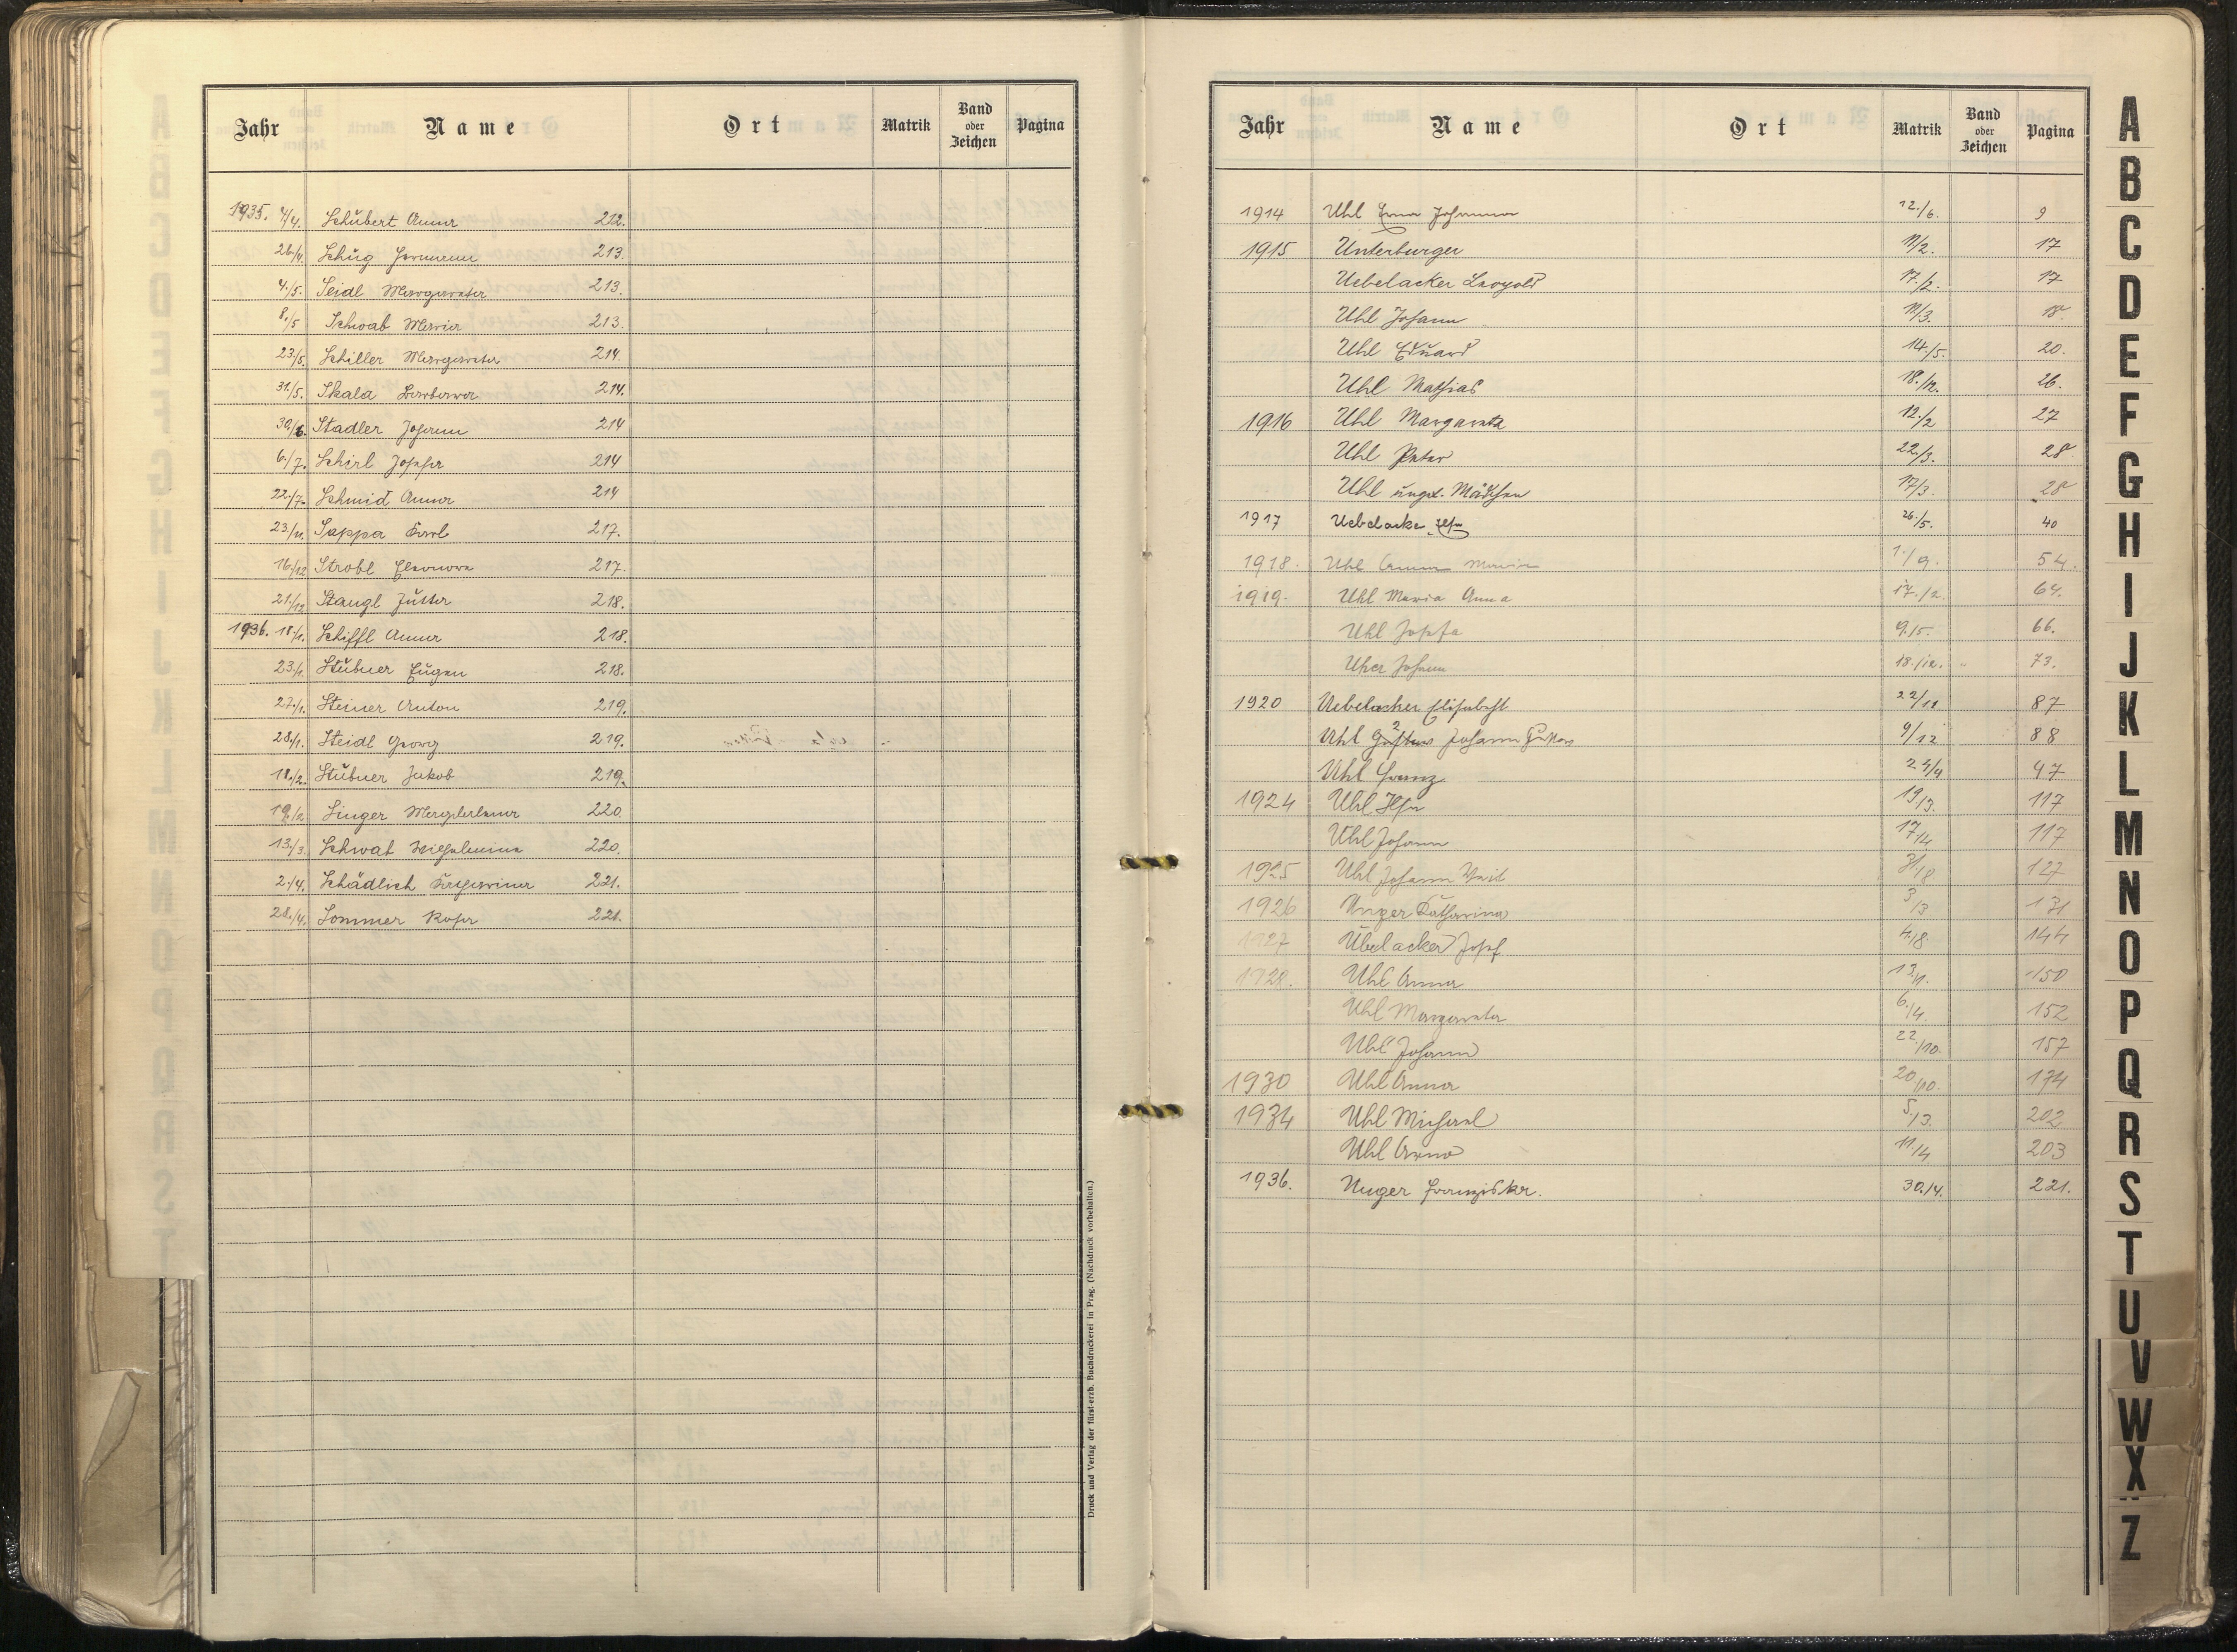 Jahr Name Ort Matrik Band oder Zeichen Pagina
1935. 4/4. Schubert Anna 212.
26/4. Schug Hermann 213
4./5. Seidl Margareta 213.
8./5 Schwab Maria 213.
23/5. Schiller Margareta 214.
31./5. Skala Barbara 214.
30/6. Stadler Johann 214
6./7. Schirl Josefa 214
22./7. Schmid Anna 214
23./11. Sappa Karl 217.
16./12 Strobl Eleonora 217.
21./12 Stangl Jutta 218.
1936. 18/1. Schiffl Anna 218.
23./1. Stübner Eugen 218.
27./1. Steiner Anton 219.
28./1. Steidl Georg 219.
18./2. Stübner Jakob 219.
19./2. Singer Magdalena 220.
13./3. Schwab Wilhelmine 220.
2./4. Schädlich Katharina 221.
28./4. Sommer Rosa 221.
Druck und Verlag der fürst-erzb. Buchdruckerei in Prag. (Nachdruck vorbehalten.)
Jahr Name Ort Matrik Band oder Zeichen Pagina
1914 Uhl Erna Johanna 12./6. 9
1915 Unterburger 11/2. 17
Uebelacker Leopold 17./2. 17
Uhl Johann 11/3. 18
Uhl Eduard 14./5. 20.
Uhl Mathias 18./12. 26.
1916 Uhl Margareta 12./2 27
Uhl Peter 22/3. 28
Uhl unget. Mädchen 17/3. 28
1917 Uebelacke 26./5. 40
1918. Uhl Anna Maria 1./9. 54.
1919. Uhl Maria Anna 17./2. 64.
Uhl Josefa 9./5. 66.
Uher Johann 18./12. 73.
1920 Uebelacker Elisabeth 22/11 87
Uhl Gustav Johann Gustav 9/12 88
Uhl Franz 24/4 97
1924 Uhl Ilse 19/3. 117
Uhl Johann 17/4 117
1925 Uhl Johann 31/8 127
1926 Unger Katharina 3/3 131
1927 Übelacker Josef 4/8. 144
1928. Uhl Anna 12/1. 150
Uhl Margareta 6./4. 152
Uhl Johann 22/10. 157
1930 Uhl Anna 20/10. 174
1934 Uhl Michael 5./3. 202
Uhl Arno 11/4 203
1936. Unger Franziska. 30./4. 221.
A
B
C
D
E
F
G
H
I
J
K
L
M
N
O
P
Q
R
S
T
U
V
W
X
Z